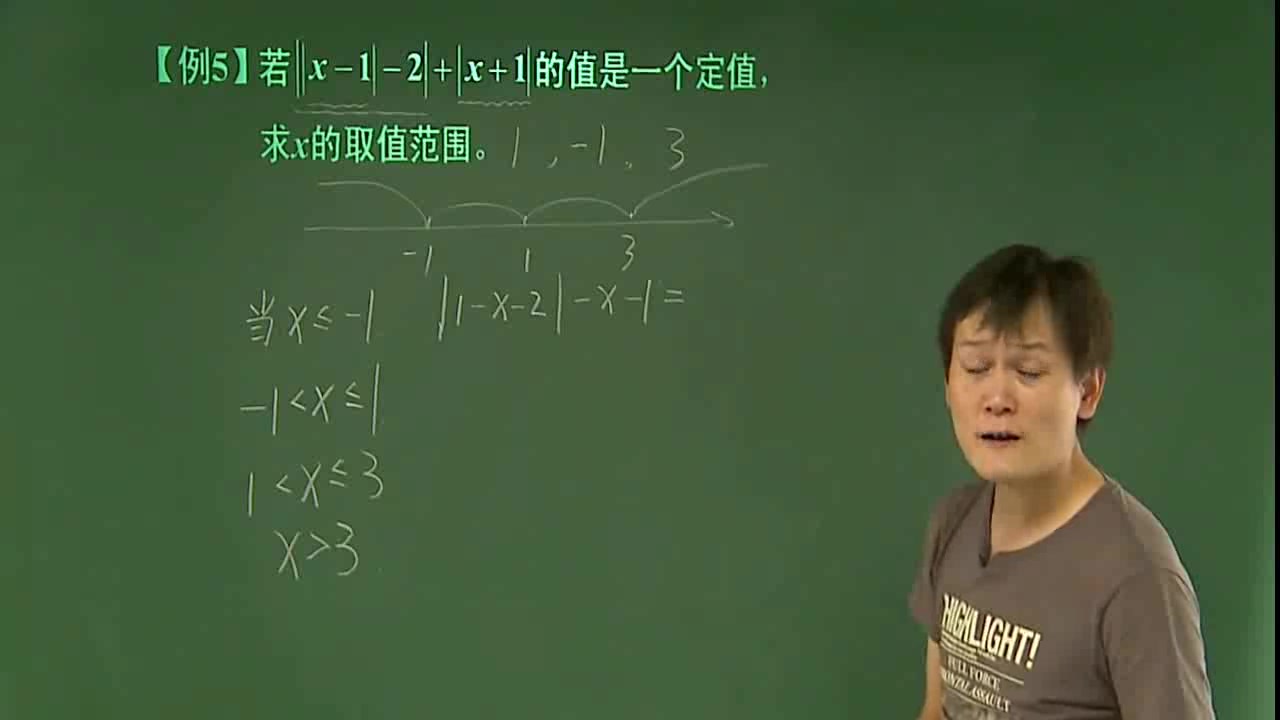 【例5】若||x－1|－2|＋|x＋1|的值是一个定值，
求x的取值范围。 1 , -1 , 3
-1 1 3
当 x ≤ -1 |1-x-2|-x-1=
-1 < x ≤ 1
1 < x ≤ 3
x > 3
HIGHLIGHT!
FULL FORCE